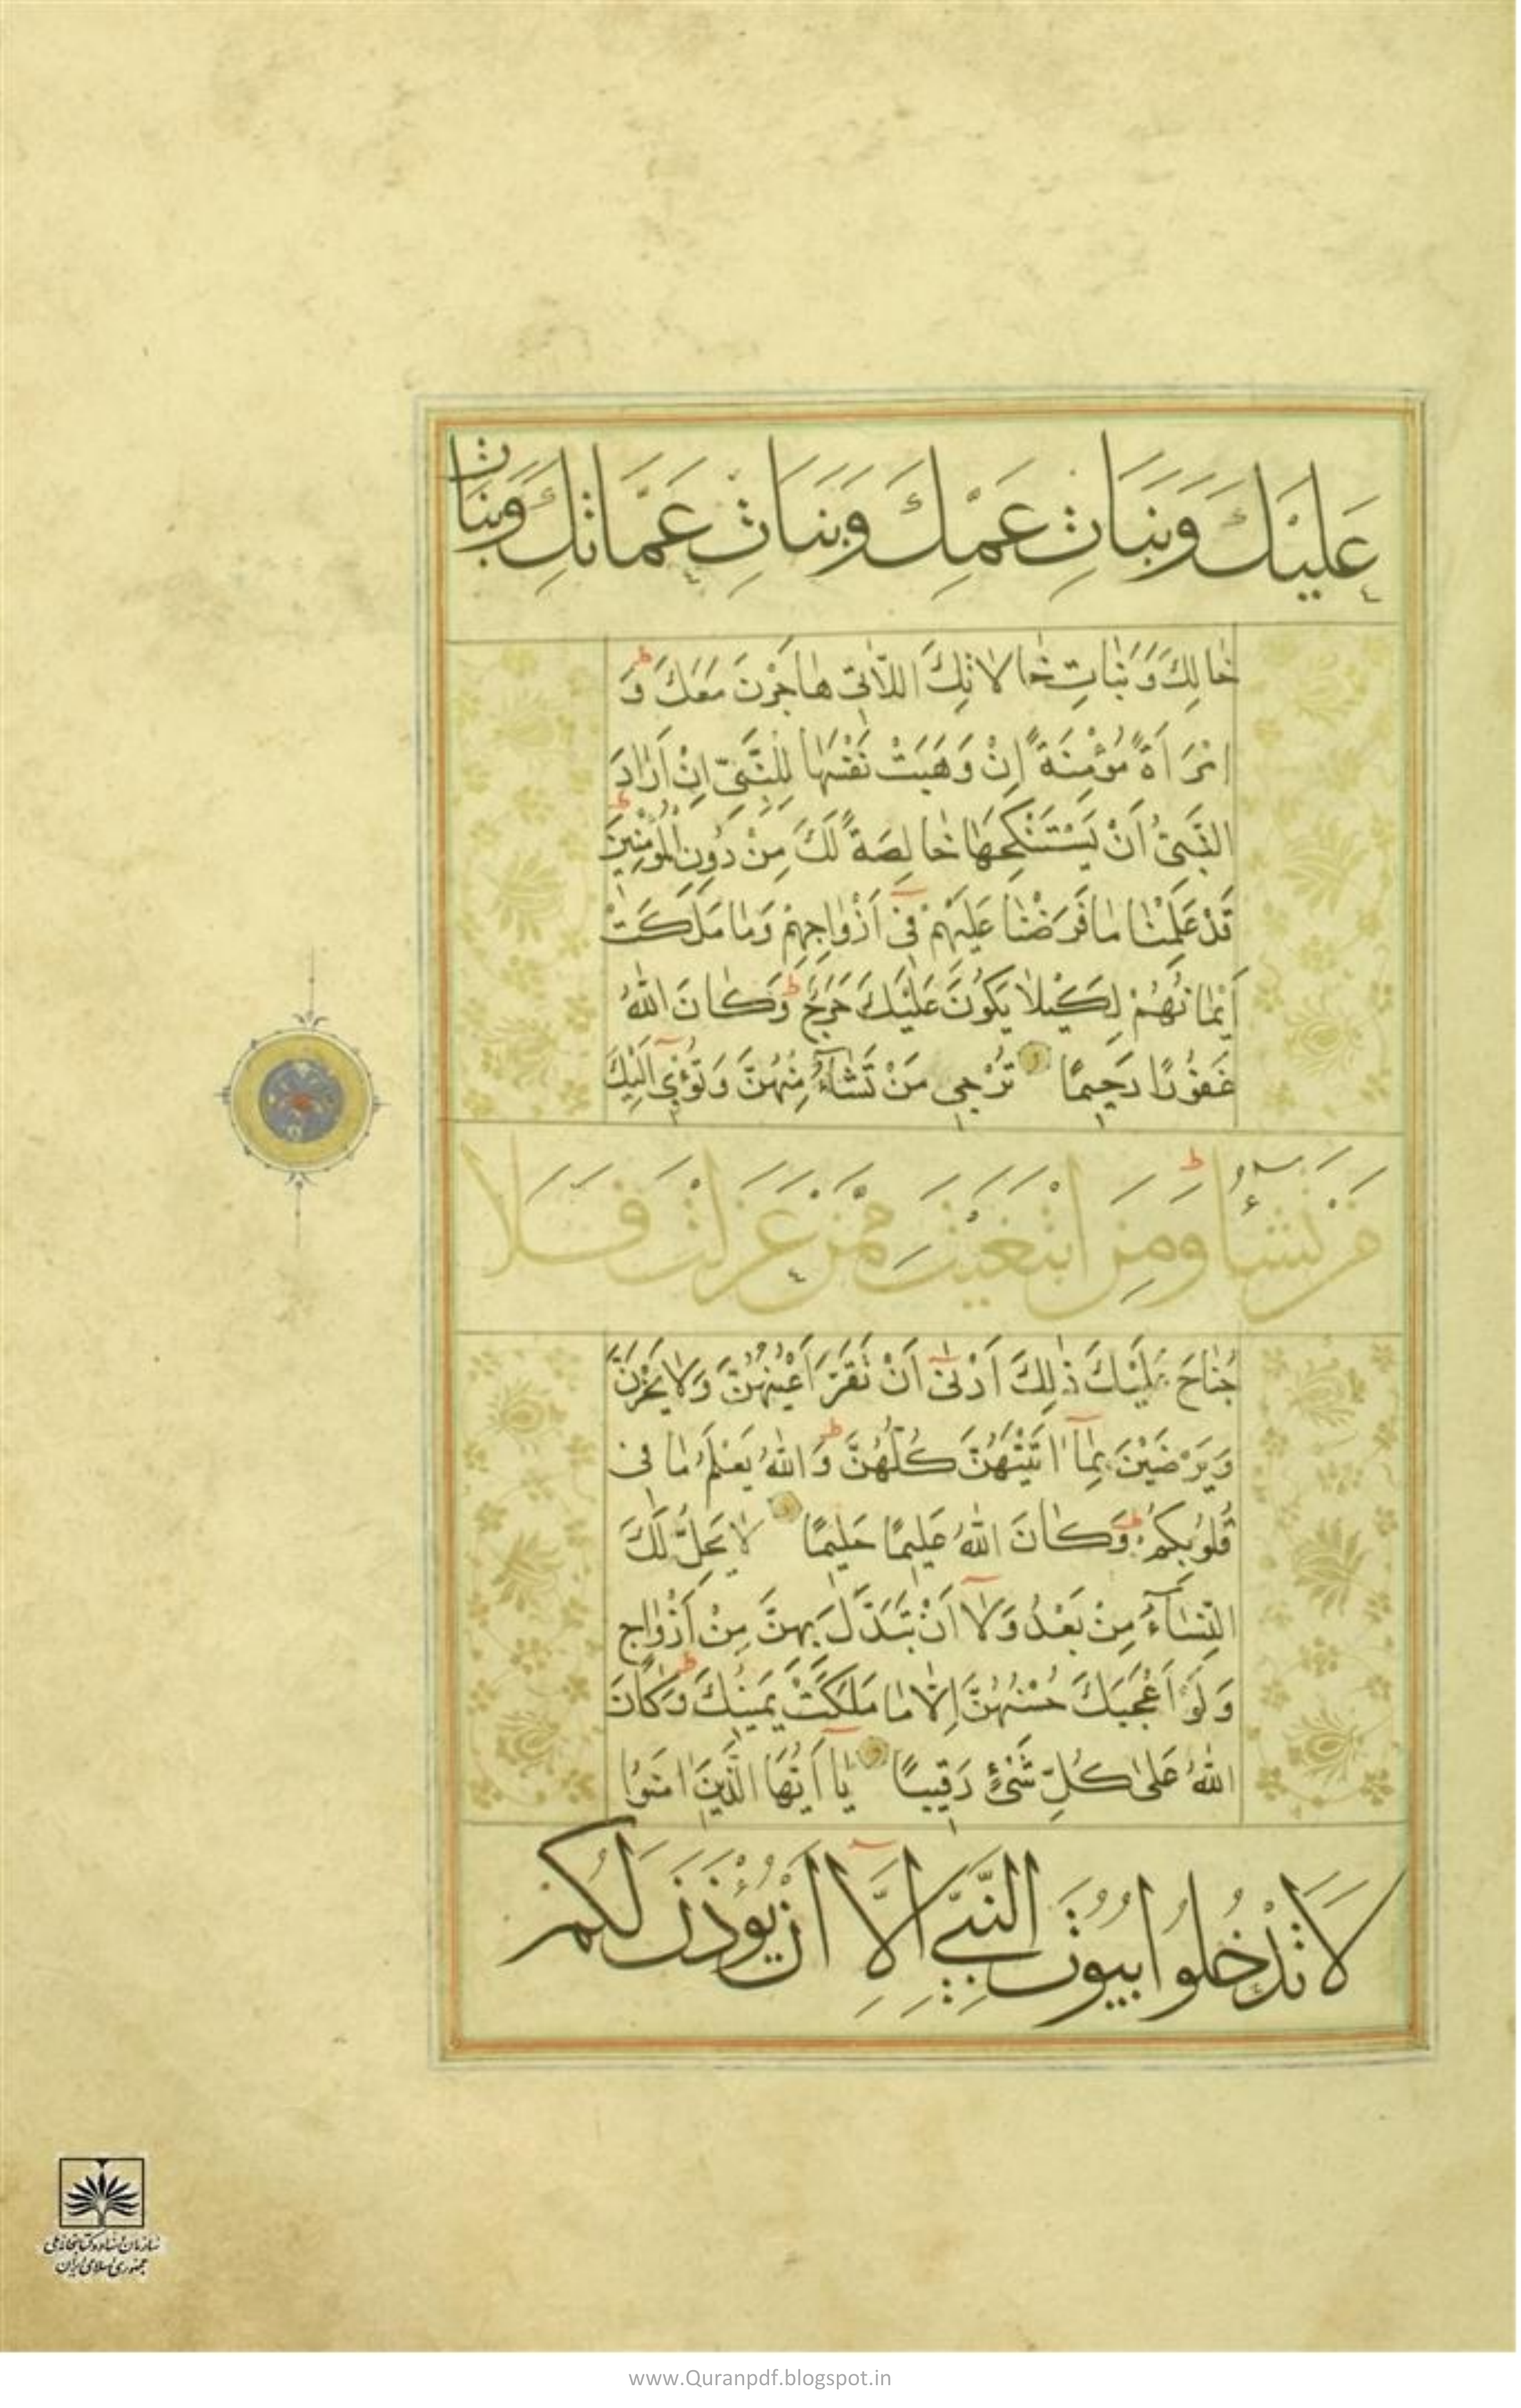 عَلَيْكَ وَبَنَاتِ عَمِّكَ وَبَنَاتِ عَمَّاتِكَ وَبَنَاتِ
خَالِكَ وَبَنَاتِ خَالَاتِكَ اللَّاتِي هَاجَرْنَ مَعَكَ وَ
امْرَأَةً مُؤْمِنَةً إِنْ وَهَبَتْ نَفْسَهَا لِلنَّبِيِّ إِنْ أَرَادَ
النَّبِيُّ أَنْ يَسْتَنْكِحَهَا خَالِصَةً لَكَ مِنْ دُونِ الْمُؤْمِنِينَ
قَدْ عَلِمْنَا مَا فَرَضْنَا عَلَيْهِمْ فِي أَزْوَاجِهِمْ وَمَا مَلَكَتْ
أَيْمَانُهُمْ لِكَيْلَا يَكُونَ عَلَيْكَ حَرَجٌ وَكَانَ اللَّهُ
غَفُورًا رَحِيمًا تُرْجِي مَنْ تَشَاءُ مِنْهُنَّ وَتُؤْوِي إِلَيْكَ
مَنْ تَشَاءُ وَمَنِ ابْتَغَيْتَ مِمَّنْ عَزَلْتَ فَلَا
جُنَاحَ عَلَيْكَ ذَلِكَ أَدْنَى أَنْ تَقَرَّ أَعْيُنُهُنَّ وَلَا يَحْزَنَّ
وَيَرْضَيْنَ بِمَا آتَيْتَهُنَّ كُلُّهُنَّ وَاللَّهُ يَعْلَمُ مَا فِي
قُلُوبِكُمْ وَكَانَ اللَّهُ عَلِيمًا حَلِيمًا لَا يَحِلُّ لَكَ
النِّسَاءُ مِنْ بَعْدُ وَلَا أَنْ تَبَدَّلَ بِهِنَّ مِنْ أَزْوَاجٍ
وَلَوْ أَعْجَبَكَ حُسْنُهُنَّ إِلَّا مَا مَلَكَتْ يَمِينُكَ وَكَانَ
اللَّهُ عَلَى كُلِّ شَيْءٍ رَقِيبًا يَا أَيُّهَا الَّذِينَ آمَنُوا
لَا تَدْخُلُوا بُيُوتَ النَّبِيِّ إِلَّا أَنْ يُؤْذَنَ لَكُمْ
سازمان اسناد و کتابخانه ملی
جمهوری اسلامی ایران
www.Quranpdf.blogspot.in